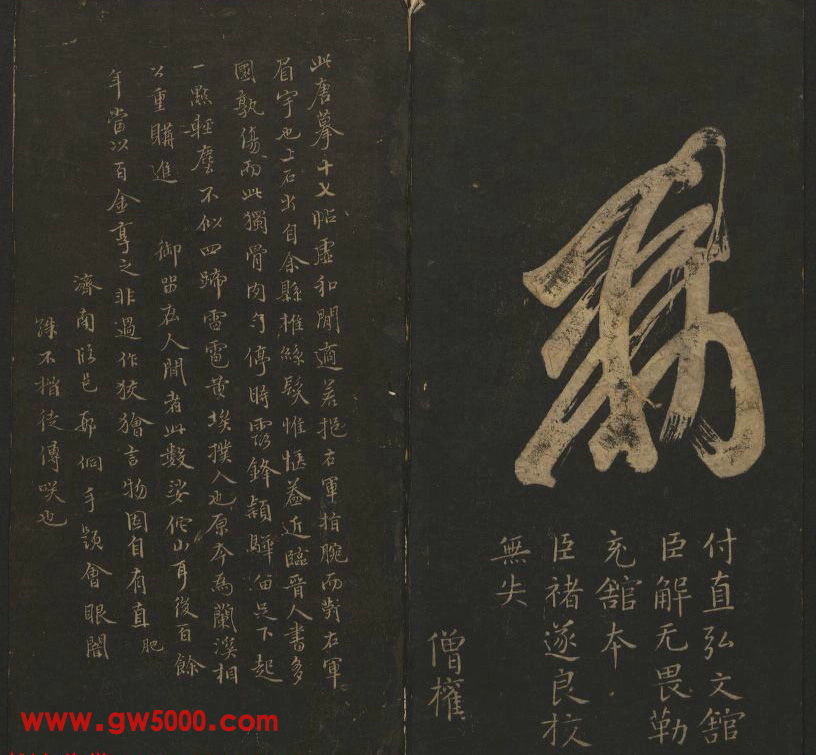 敕
付直弘文館
臣解无畏勒
充館本
臣褚遂良校
無失
僧權
此唐摹十七帖虛和閒適若挹右軍指腕而對右軍
眉宇也上石出自余縣推絲髮惟愜蓋近臨晉人書多
傷而此獨骨肉勻停時露鋒穎驊騮足下起
一點輕塵不似四蹄雷電黃埃撲人也原本為蘭溪相
公重購進 御留在人間者此數娑佗山耳後百餘
年當以百金享之非過作狡獪言物固自有直肥
濟南臨邑邢侗手題會眼闇
殊不楷徒傳咲也
www.gw5000.com